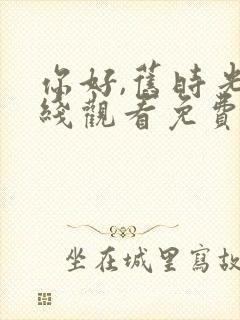 你好,舊時光
綫觀看免費
坐在城里寫故